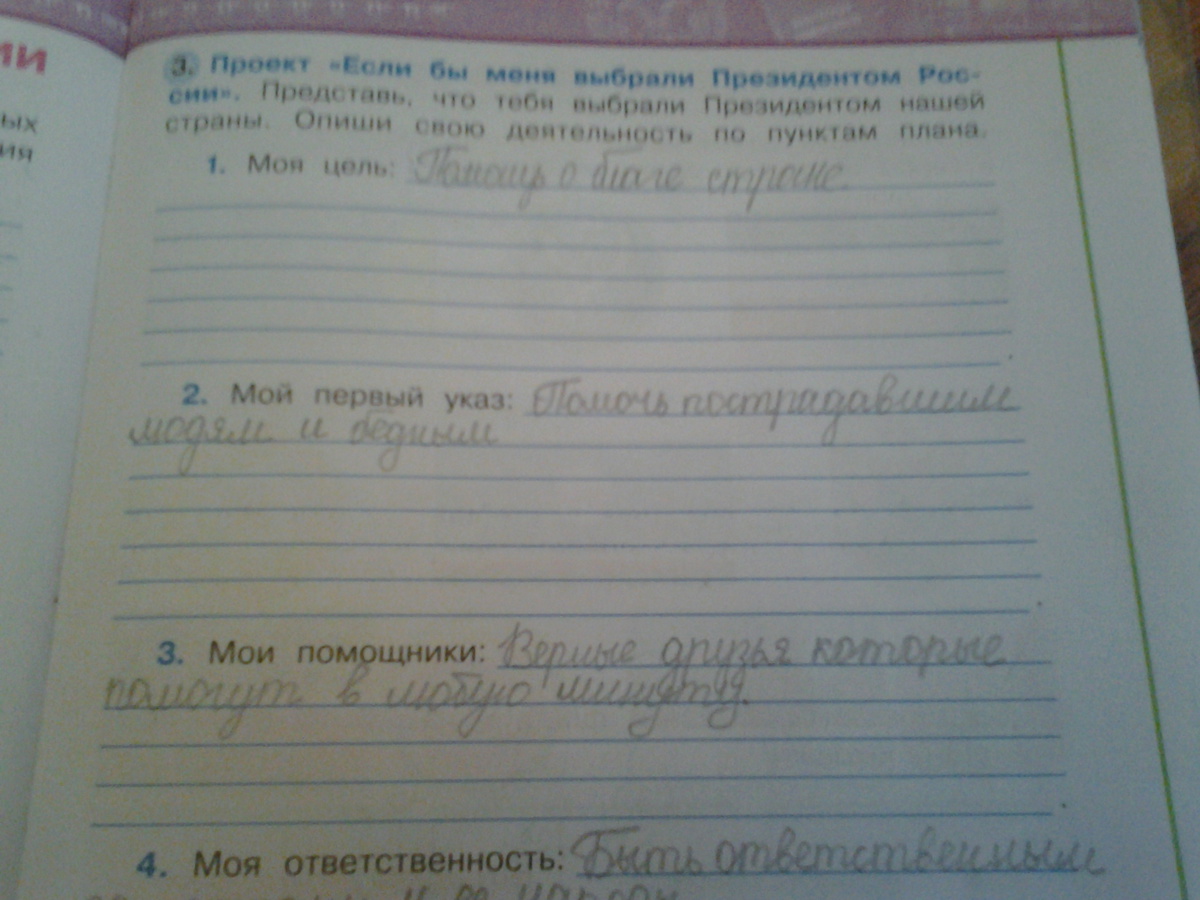 ии
ых
ия
3. Проект «Если бы меня выбрали Президентом Рос-
сии». Представь, что тебя выбрали Президентом нашей
страны. Опиши свою деятельность по пунктам плана.
1. Моя цель: Помощь о благе стране.
2. Мой первый указ: Помочь пострадавшим
людям и бедным
3. Мои помощники: Верные друзья которые
помогут в любую минуту.
4. Моя ответственность: Быть ответственным